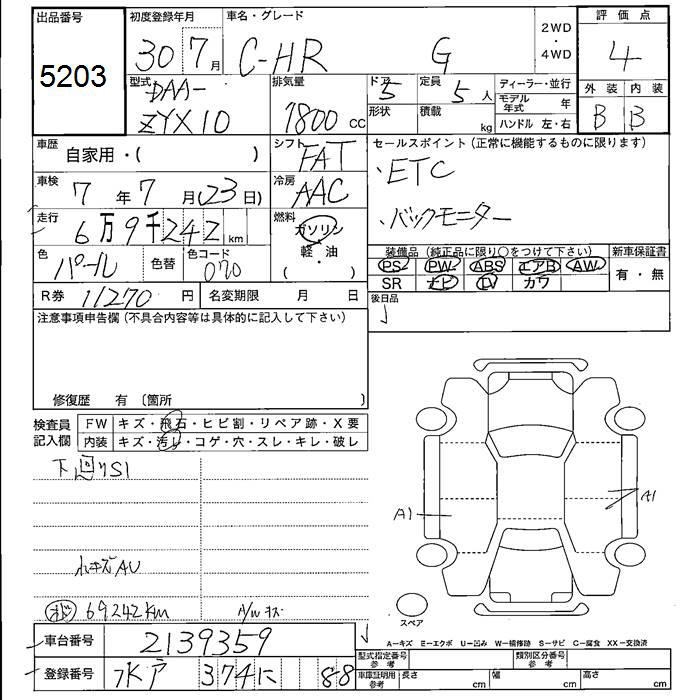 出品番号
5203
初度登録年月
30 7月
車名・グレード
C-HR G
2WD
・
4WD
評価点
4
型式
DAA-
ZYX10
排気量
1800 cc
ドア
5
定員
5人
形状
積載
kg
ディーラー・並行
モデル年式 年
ハンドル 左・右
外装 内装
B B
車歴
自家用・( )
シフト
FAT
セールスポイント(正常に機能するものに限ります)
・ETC
・バックモニター
車検
7年7月(23日)
冷房
AAC
走行
6万9千242km
燃料
ガソリン
軽・油
( )
色
パール
色替
色コード
070
装備品(純正品に限り○をつけて下さい)
PS PW ABS エアB AW
SR ナビ TV カワ
新車保証書
有・無
R券 11270円
名変期限 月 日
後日品
注意事項申告欄(不具合内容等は具体的に記入して下さい)
修復歴 有〔箇所 〕
検査員
記入欄
FW キズ・飛石・ヒビ割・リペア跡・X要
内装 キズ・汚レ・コゲ・穴・スレ・キレ・破レ
下回りS1
A1
A1
小キズAU
オド 69242KM
A/Wキズ
スペア
A-キズ E-エクボ U-凹み W-補修跡 S-サビ C-腐食 XX-交換済
車台番号 2139359
型式指定番号
参考
類別区分番号
参考
登録番号 水戸 374 に 88
車庫証明用
参考
長さ cm
幅 cm
高さ cm